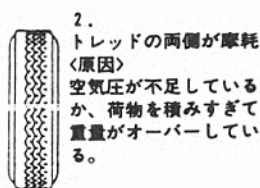 2.
トレッドの両側が摩耗
<原因>
空気圧が不足している
か、荷物を積みすぎて
重量がオーバーしてい
る。